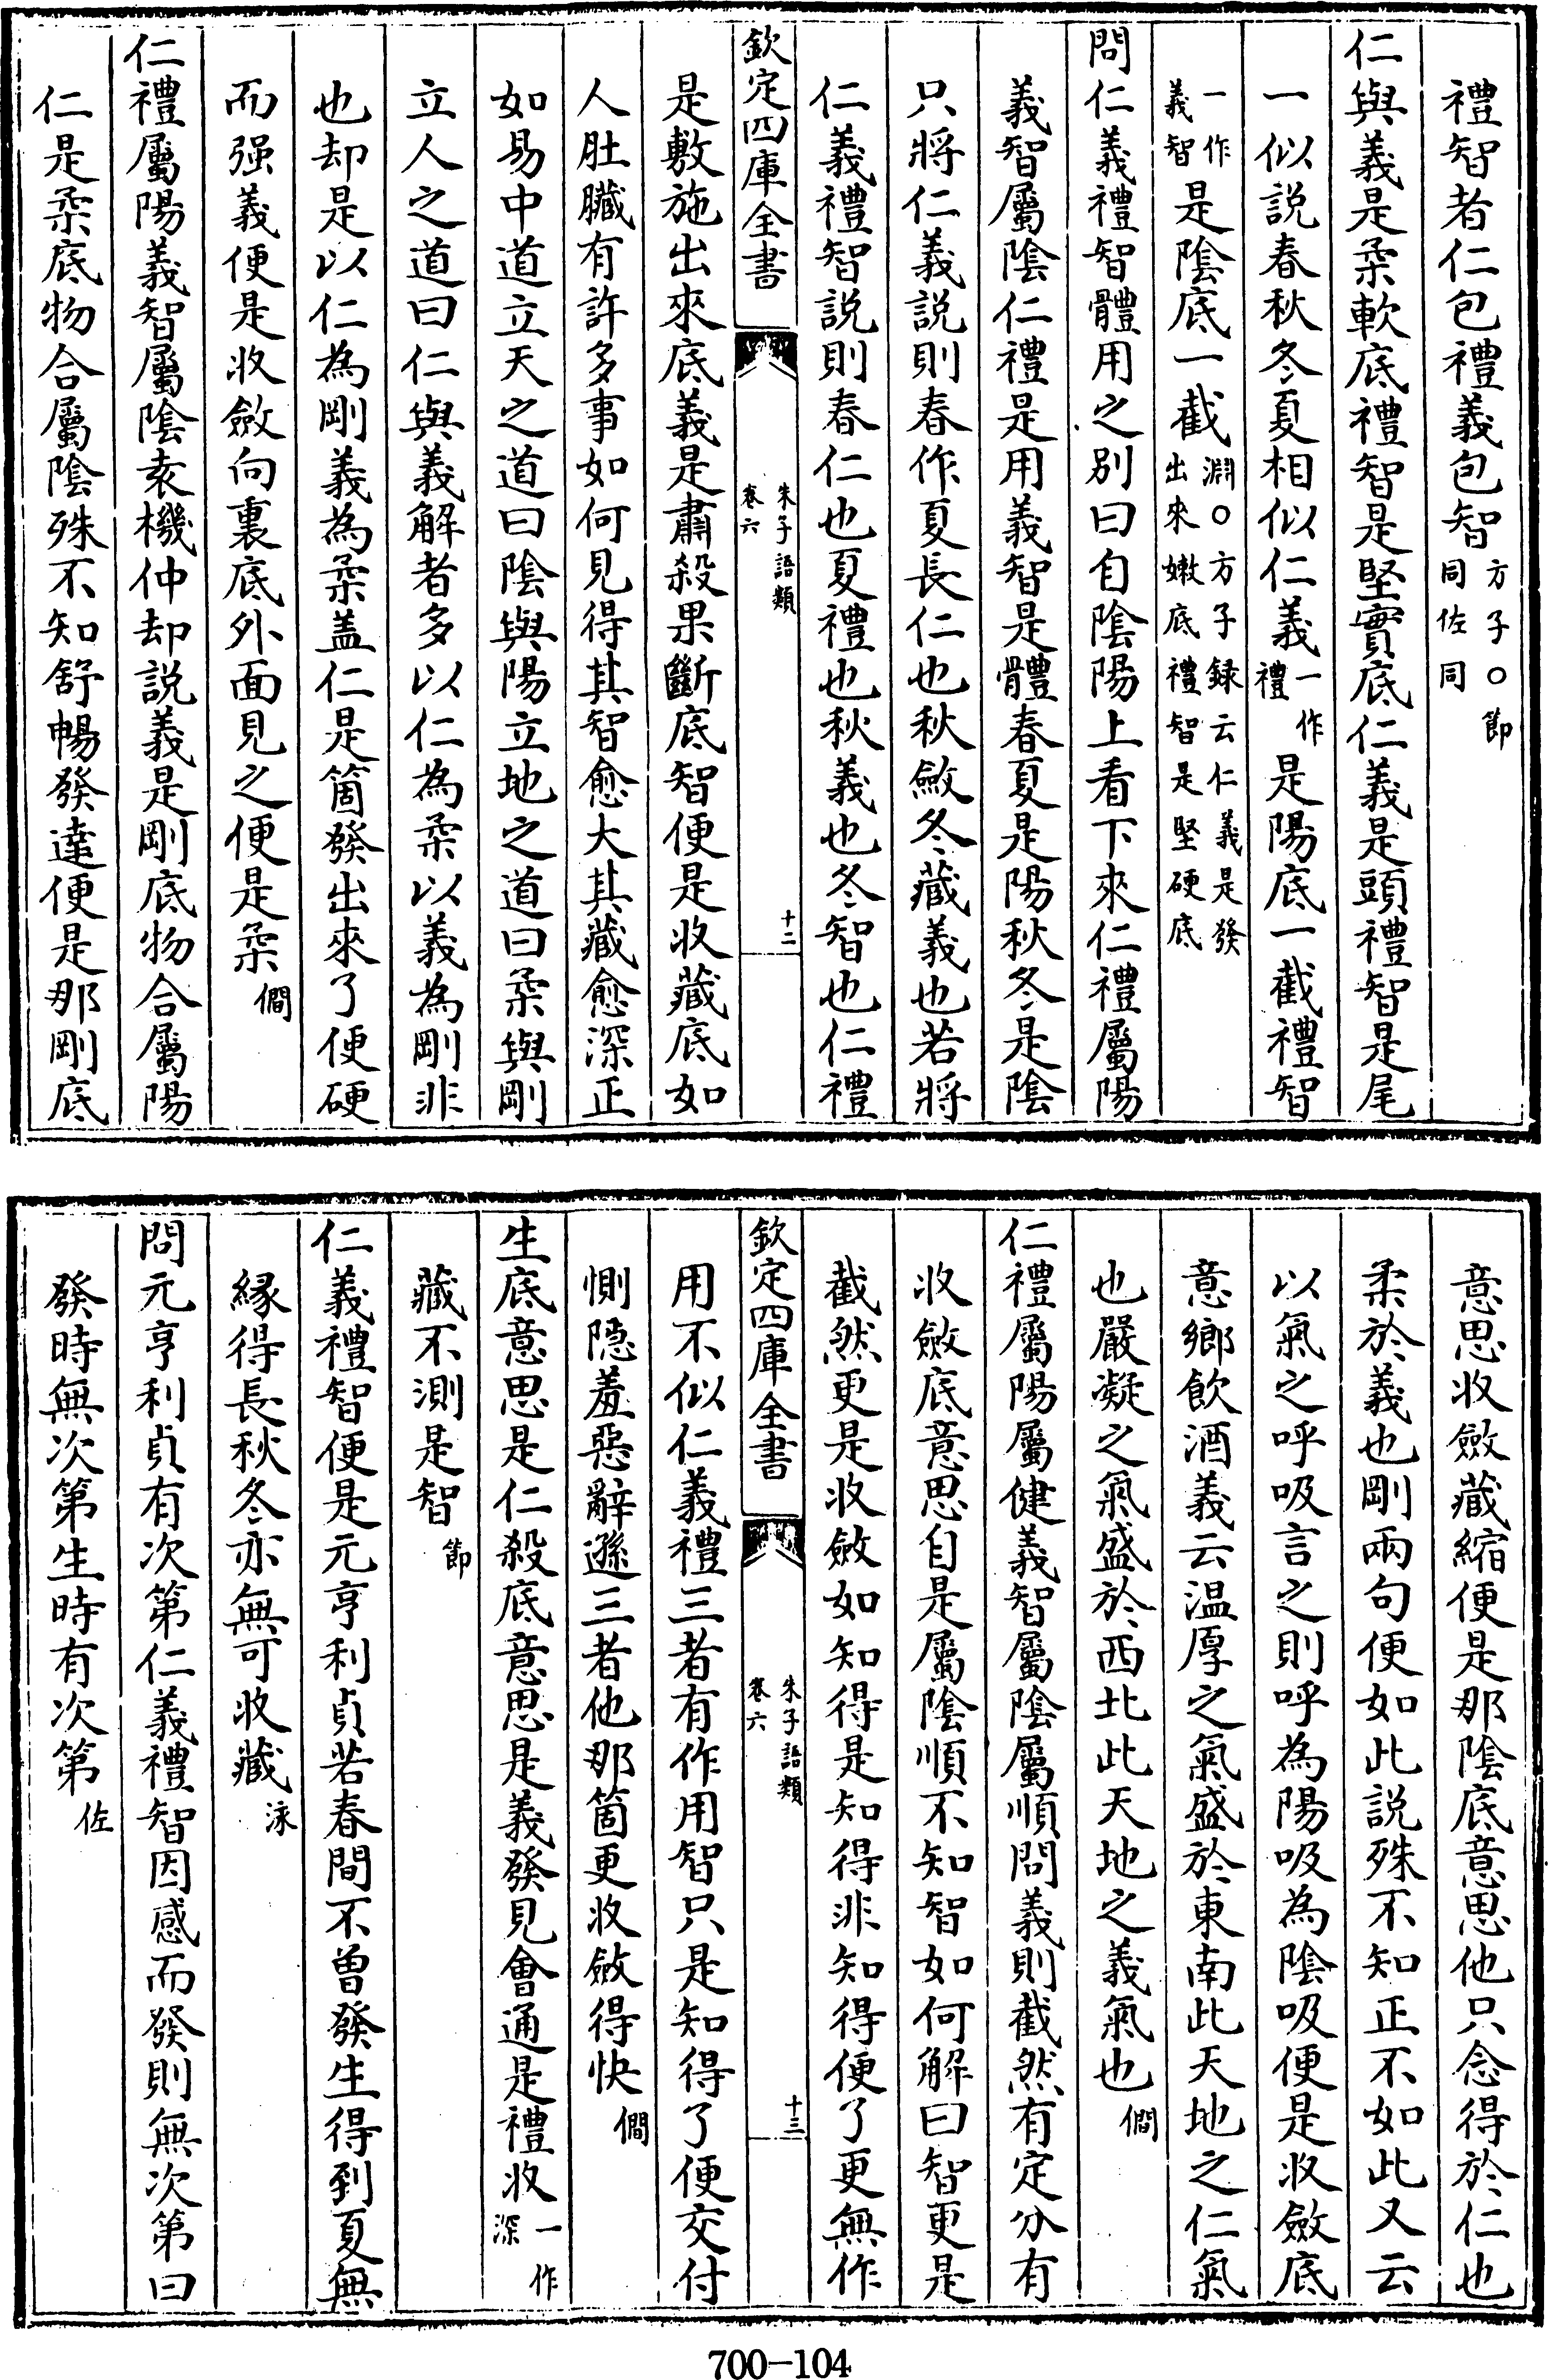 禮智者仁包禮義包智方子○節同佐同
仁與義是柔軟底禮智是堅實底仁義是頭禮智是尾
一似説春秋冬夏相似仁義一作禮是陽底一截禮智
一作義智是陰底一截淵○方子録云仁義是發出來嫩底禮智是堅硬底
問仁義禮智體用之別曰自陰陽上看下來仁禮屬陽
義智屬陰仁禮是用義智是體春夏是陽秋冬是陰
只將仁義説則春作夏長仁也秋斂冬藏義也若將
仁義禮智説則春仁也夏禮也秋義也冬智也仁禮
欽定四庫全書 朱子語類 卷六 十二
是敷施出來底義是肅殺果斷底智便是收藏底如
人肚臟有許多事如何見得其智愈大其藏愈深正
如易中道立天之道曰陰與陽立地之道曰柔與剛
立人之道曰仁與義解者多以仁為柔以義為剛非
也却是以仁為剛義為柔盖仁是箇發出來了便硬
而强義便是收斂向裏底外面見之便是柔僩
仁禮屬陽義智屬陰袁機仲却説義是剛底物合屬陽
仁是柔底物合屬陰殊不知舒暢發達便是那剛底
意思收斂藏縮便是那陰底意思他只念得於仁也
柔於義也剛兩句便如此説殊不知正不如此又云
以氣之呼吸言之則呼為陽吸為陰吸便是收斂底
意鄉飲酒義云温厚之氣盛於東南此天地之仁氣
也嚴凝之氣盛於西北此天地之義氣也僩
仁禮屬陽屬健義智屬陰屬順問義則截然有定分有
收斂底意思自是屬陰順不知智如何解曰智更是
截然更是收斂如知得是知得非知得便了更無作
欽定四庫全書 朱子語類 卷六 十三
用不似仁義禮三者有作用智只是知得了便交付
惻隐羞惡辭遜三者他那箇更收斂得快僩
生底意思是仁殺底意思是義發見會通是禮收一作深
藏不測是智節
仁義禮智便是元亨利貞若春間不曾發生得到夏無
緣得長秋冬亦無可收藏泳
問元亨利貞有次第仁義禮智因感而發則無次第曰
發時無次第生時有次第佐
700-104